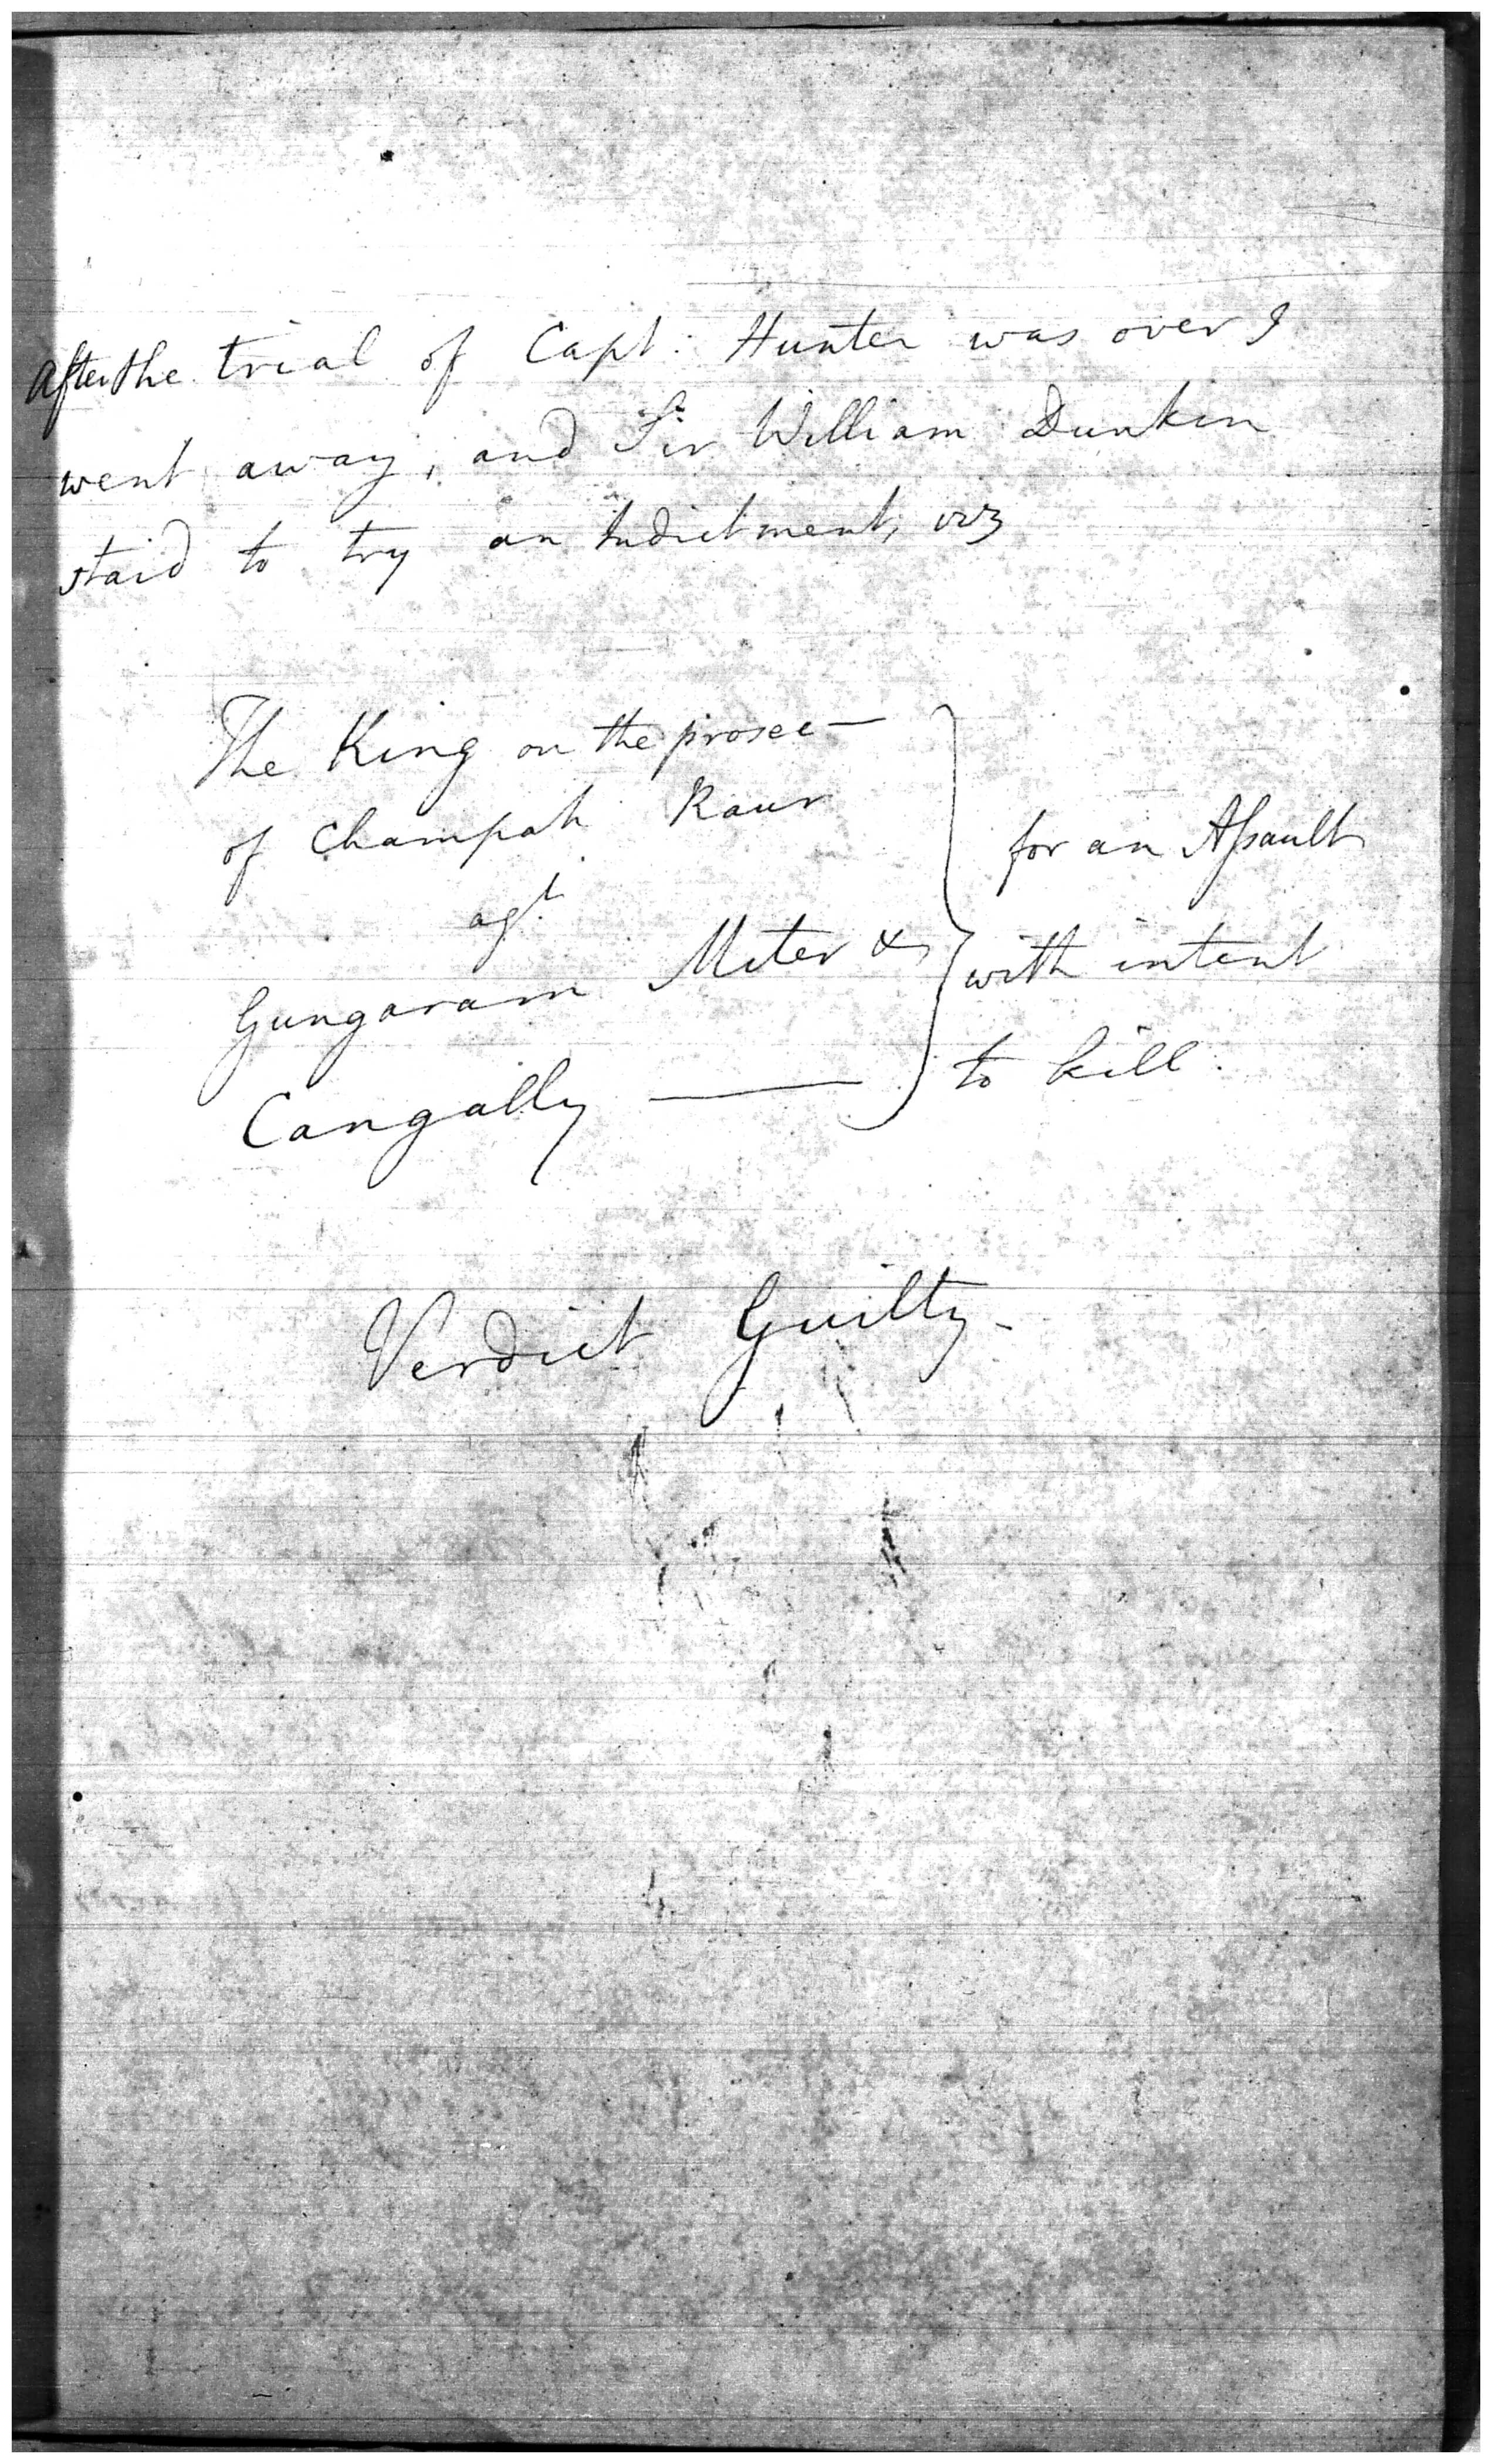 After the trial of Capt: Hunter was over I
went away, and Sir William Dunkin
staid to try an Indictment, viz
The King on the prosec—
of Champah Raur
agt.
Gungaram Miter &
Cangally —
for an Assault
with intent
to kill.
Verdict Guilty-